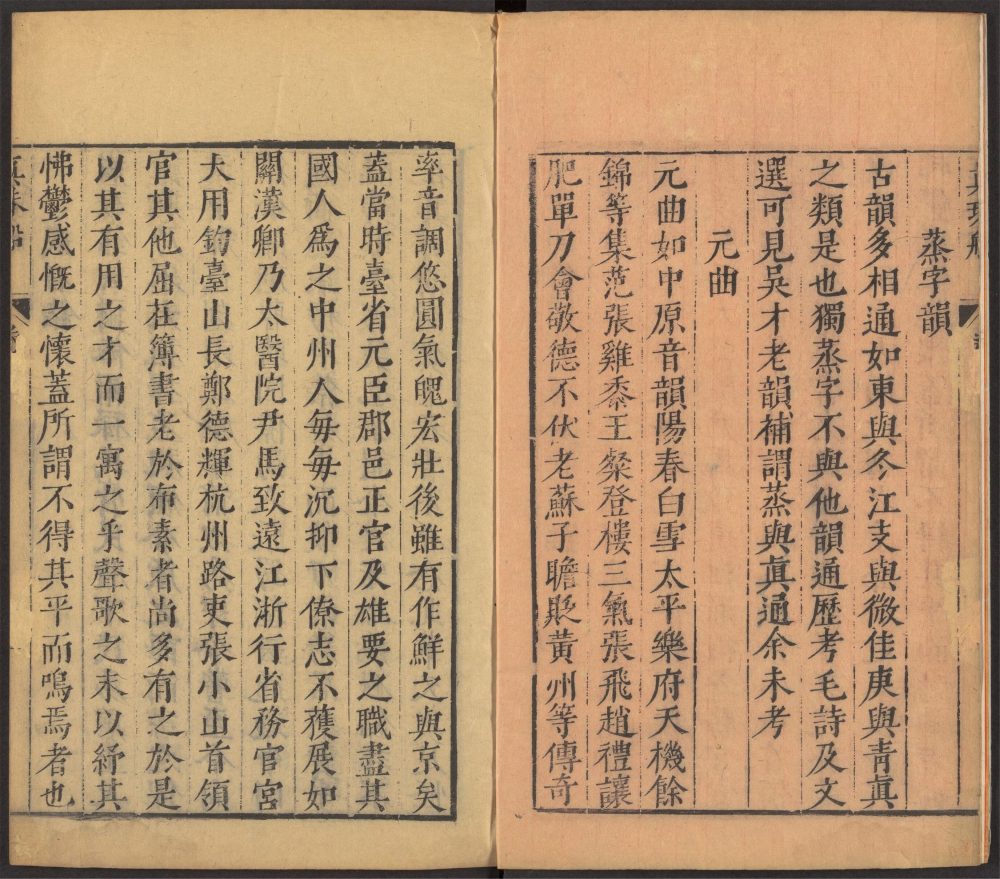 蒸字韻
古韻多相通如東與冬江支與微佳庚與靑眞
之類是也獨蒸字不與他韻通歷考毛詩及文
選可見吳才老韻補謂蒸與眞通余未考
元曲
元曲如中原音韻陽春白雪太平樂府天機餘
錦等集范張雞黍王粲登樓三氣張飛趙禮讓
肥單刀會敬德不伏老蘇子瞻貶黃州等傳奇
率音調悠圓氣魄宏壯後雖有作鮮之與京矣
蓋當時臺省元臣郡邑正官及雄要之職盡其
國人爲之中州人每每沉抑下僚志不獲展如
關漢卿乃太醫院尹馬致遠江浙行省務官宮
大用釣臺山長鄭德輝杭州路吏張小山首領
官其他屈在簿書老於布素者尚多有之於是
以其有用之才而一寓之乎聲歌之末以紓其
怫鬱感慨之懷蓋所謂不得其平而鳴焉者也
眞珠船